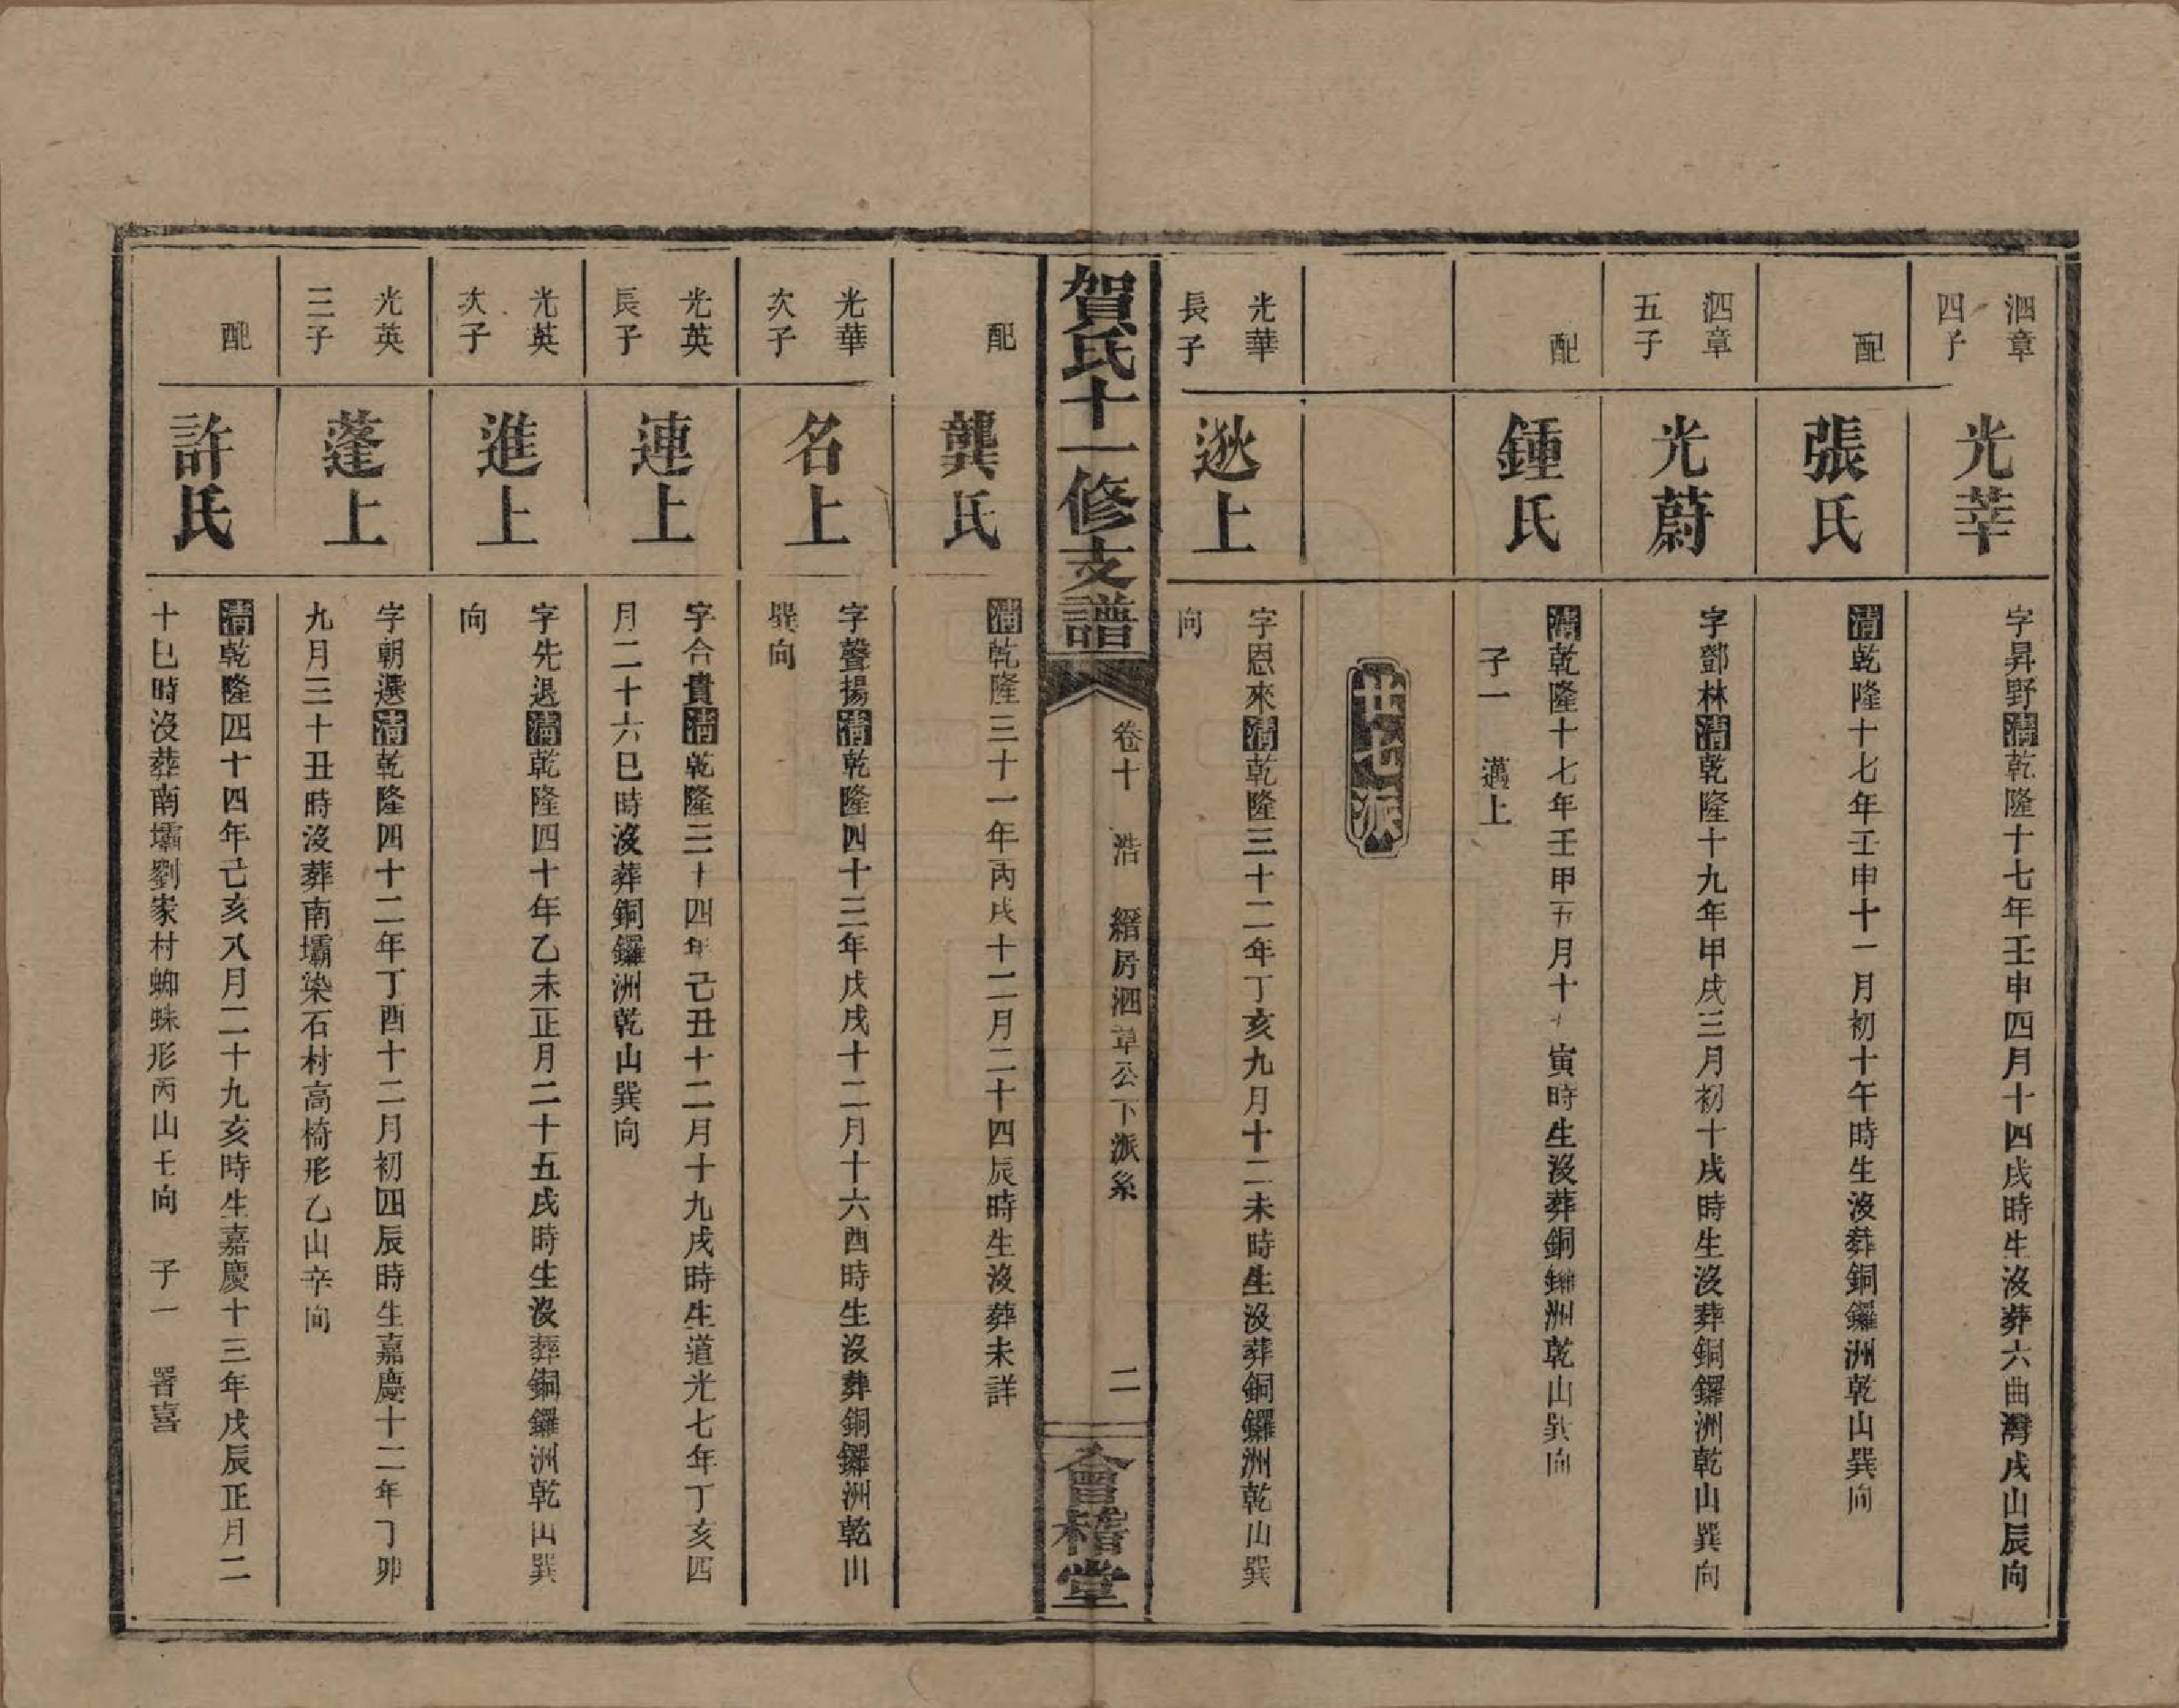 泗章
四子
光莘
字昇野清乾隆十七年壬申四月十四戌時生沒葬六曲灣戌山辰向
配
張氏
清乾隆十七年壬申十一月初十午時生沒葬銅鑼洲乾山巽向
泗章
五子
光蔚
字鄧林清乾隆十九年甲戌三月初十戌時生沒葬銅鑼洲乾山巽向
配
鍾氏
清乾隆十七年壬申五月十 寅時生沒葬銅鑼洲乾山巽向
子一 邁上
廿七派
光華
長子
逖上
字恩來清乾隆三十二年丁亥九月十二未時生沒葬銅鑼洲乾山巽
向
賀氏十一修支譜
卷十 浩 縉房泗章公下派系 二
會稽堂
配
龔氏
清乾隆三十一年丙戌十二月二十四辰時生沒葬未詳
光華
次子
名上
字聲揚清乾隆四十三年戊戌十二月十六酉時生沒葬銅鑼洲乾山
巽向
光英
長子
連上
字合貴清乾隆三十四年己丑十二月十九戌時生道光七年丁亥四
月二十六巳時沒葬銅鑼洲乾山巽向
光英
次子
進上
字先退清乾隆四十年乙未正月二十五戌時生沒葬銅鑼洲乾山巽
向
光英
三子
蓬上
字朝選清乾隆四十二年丁酉十二月初四辰時生嘉慶十二年丁卯
九月三十丑時沒葬南壩染石村高椅形乙山辛向
配
許氏
清乾隆四十四年己亥八月二十九亥時生嘉慶十三年戊辰正月二
十巳時沒葬南壩劉家村蜘蛛形丙山壬向 子一 署喜